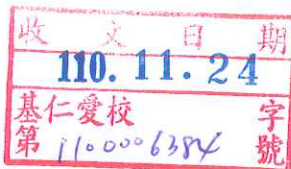 收文日期
110.11.24
基仁愛校 字
第 1100006384 號